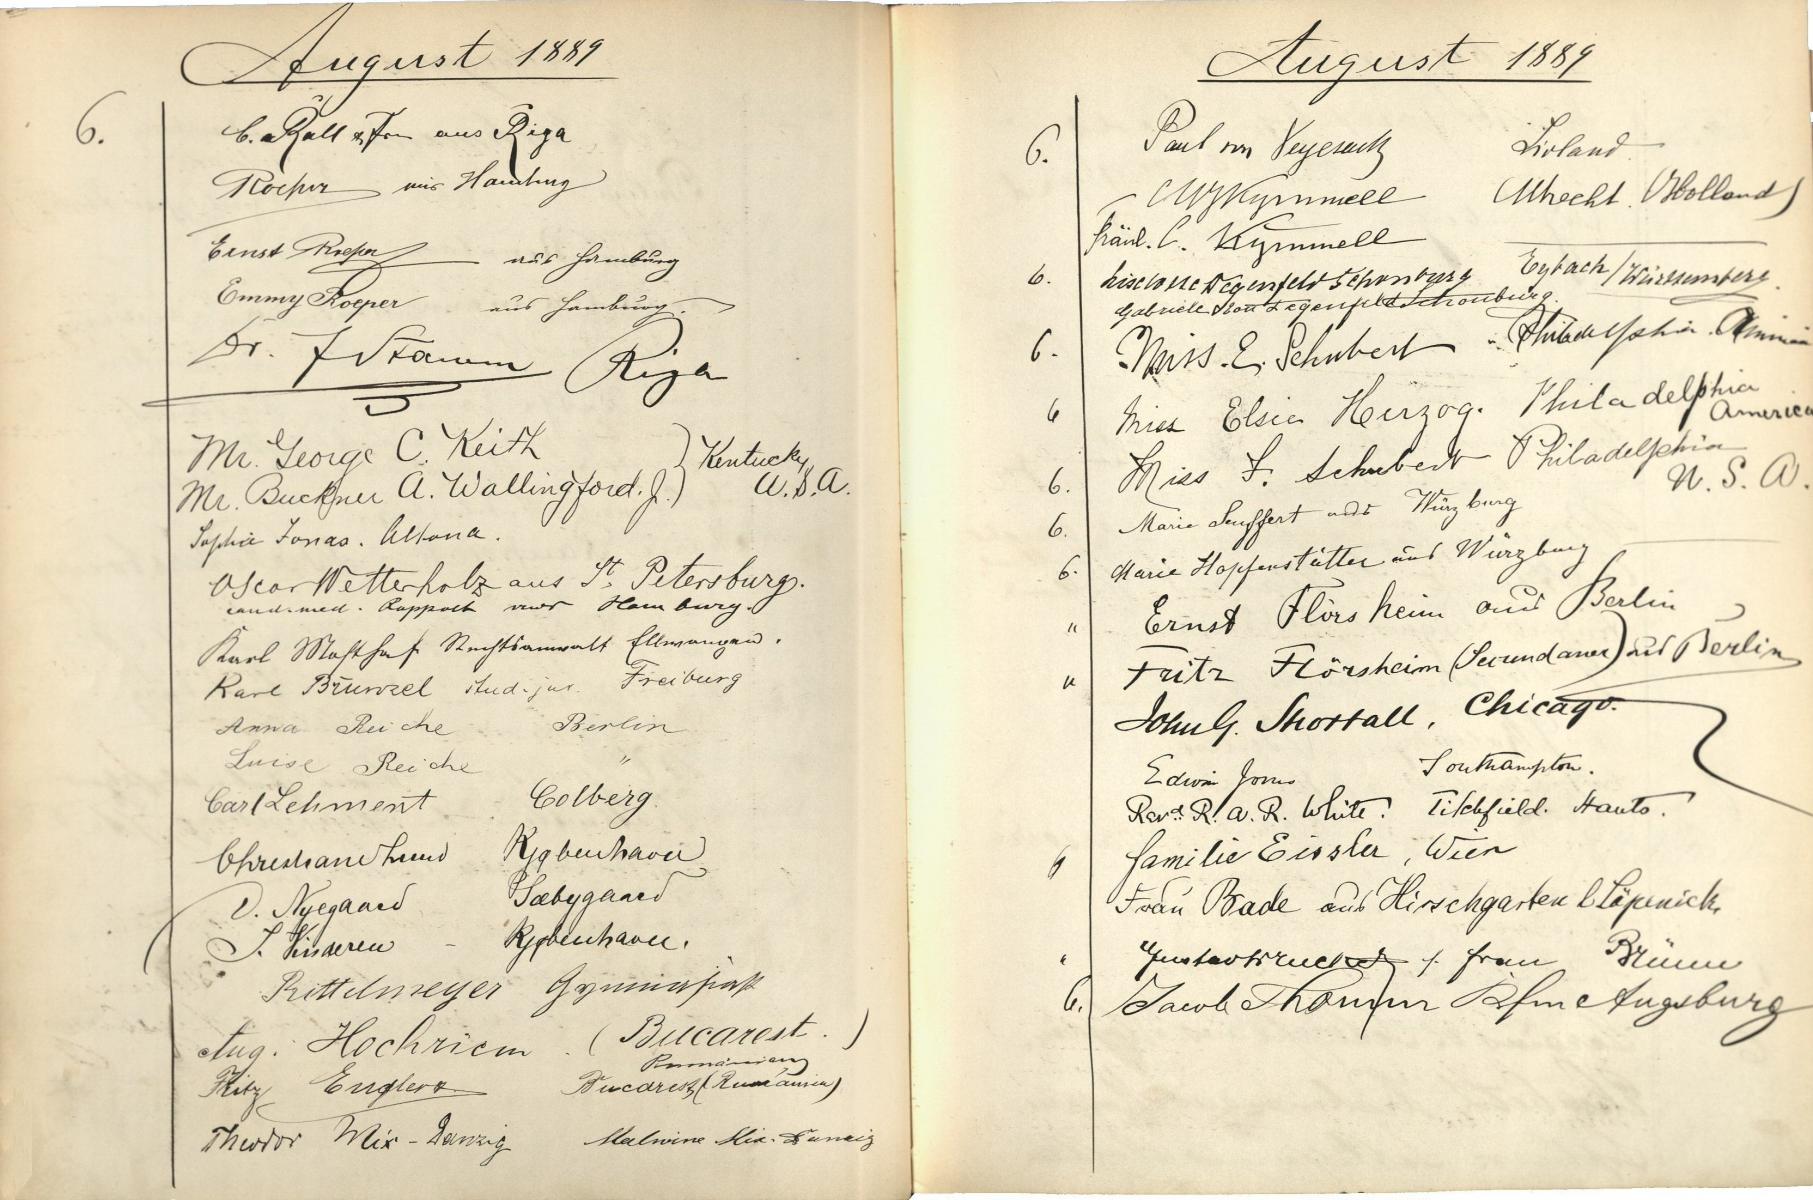 August 1889
6.
C. Rall & Frau aus Riga
Roeper aus Hamburg
Ernst Roeper aus Hamburg
Emmy Roeper aus Hamburg
Dr. F Stamm Riga
Mr. George C. Keith
Kentucky
Mr. Buckner A. Wallingford. J.
U.S.A.
Sophie Jonas. Altona.
Oscar Wetterholz aus St. Petersburg.
cand. med. Rappolt aus Hamburg.
Karl Rechtsanwalt Ellwangen.
Karl stud. jur. Freiburg
Anna Reiche Berlin
Luise Reiche "
Carl Lehment Colberg
Christiane Lund Kjøbenhavn
O. Nyegaard Sæbygaard
J. Kjøbenhavn.
Rittelmeyer
Aug. Hochriem (Bucarest.)
Rumänien
Fritz Englert Bucarest (Rumänien)
Theodor Mix - Danzig Malwine Mix - Danzig
August 1889
6. Paul von Vegesack Livland
Kymmell Utrecht (Holland)
Fräul. C. Kymmell
6. Liselotte Degenfeld Schonburg Eybach / Württemberg.
Gabriele von Degenfeld Schonburg.
6. Miss. E. Schubert Philadelphia. America
6 Miss Elsie Herzog. Philadelphia
America
6. Miss F. Schubert Philadelphia
U. S. A.
6. Marie Seuffert aus Würzburg
6. Marie Hopfenstätter aus Würzburg
" Ernst Flörsheim aus Berlin
" Fritz Flörsheim (Secundaner) aus Berlin
John G. Shortall, Chicago.
Edwin Jones Southampton.
Revd. R. A. R. White. Titchfield. Hants.
6 Familie Eissler, Wien
Frau Bade aus Hirschgarten b Cöpenick.
" Frau Brünn
6. Jacob Kfm Augsburg